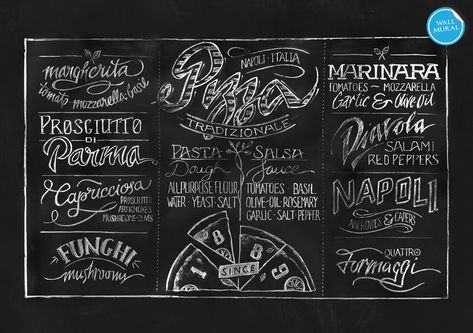 WALL
MURAL
margherita
tomato mozzarella basil
PROSCIUTTO
DI
Parma
Capricciosa
PROSCIUTTO
ARTICHOKES
MUSHROOMS-OLIVES
FUNGHI
mushrooms
NAPOLI · ITALIA
Pizza
TRADIZIONALE
PASTA
Dough
ALL PURPOSE FLOUR
WATER · YEAST · SALT
SALSA
Sauce
TOMATOES · BASIL
OLIVE-OIL · ROSEMARY
GARLIC · SALT · PEPPER
1889
SINCE
MARINARA
TOMATOES ~ MOZZARELLA
Garlic & Olive Oil
Diavola
SALAMI
RED PEPPERS
NAPOLI
ANCHOVIES & CAPERS
QUATTRO
Formaggi